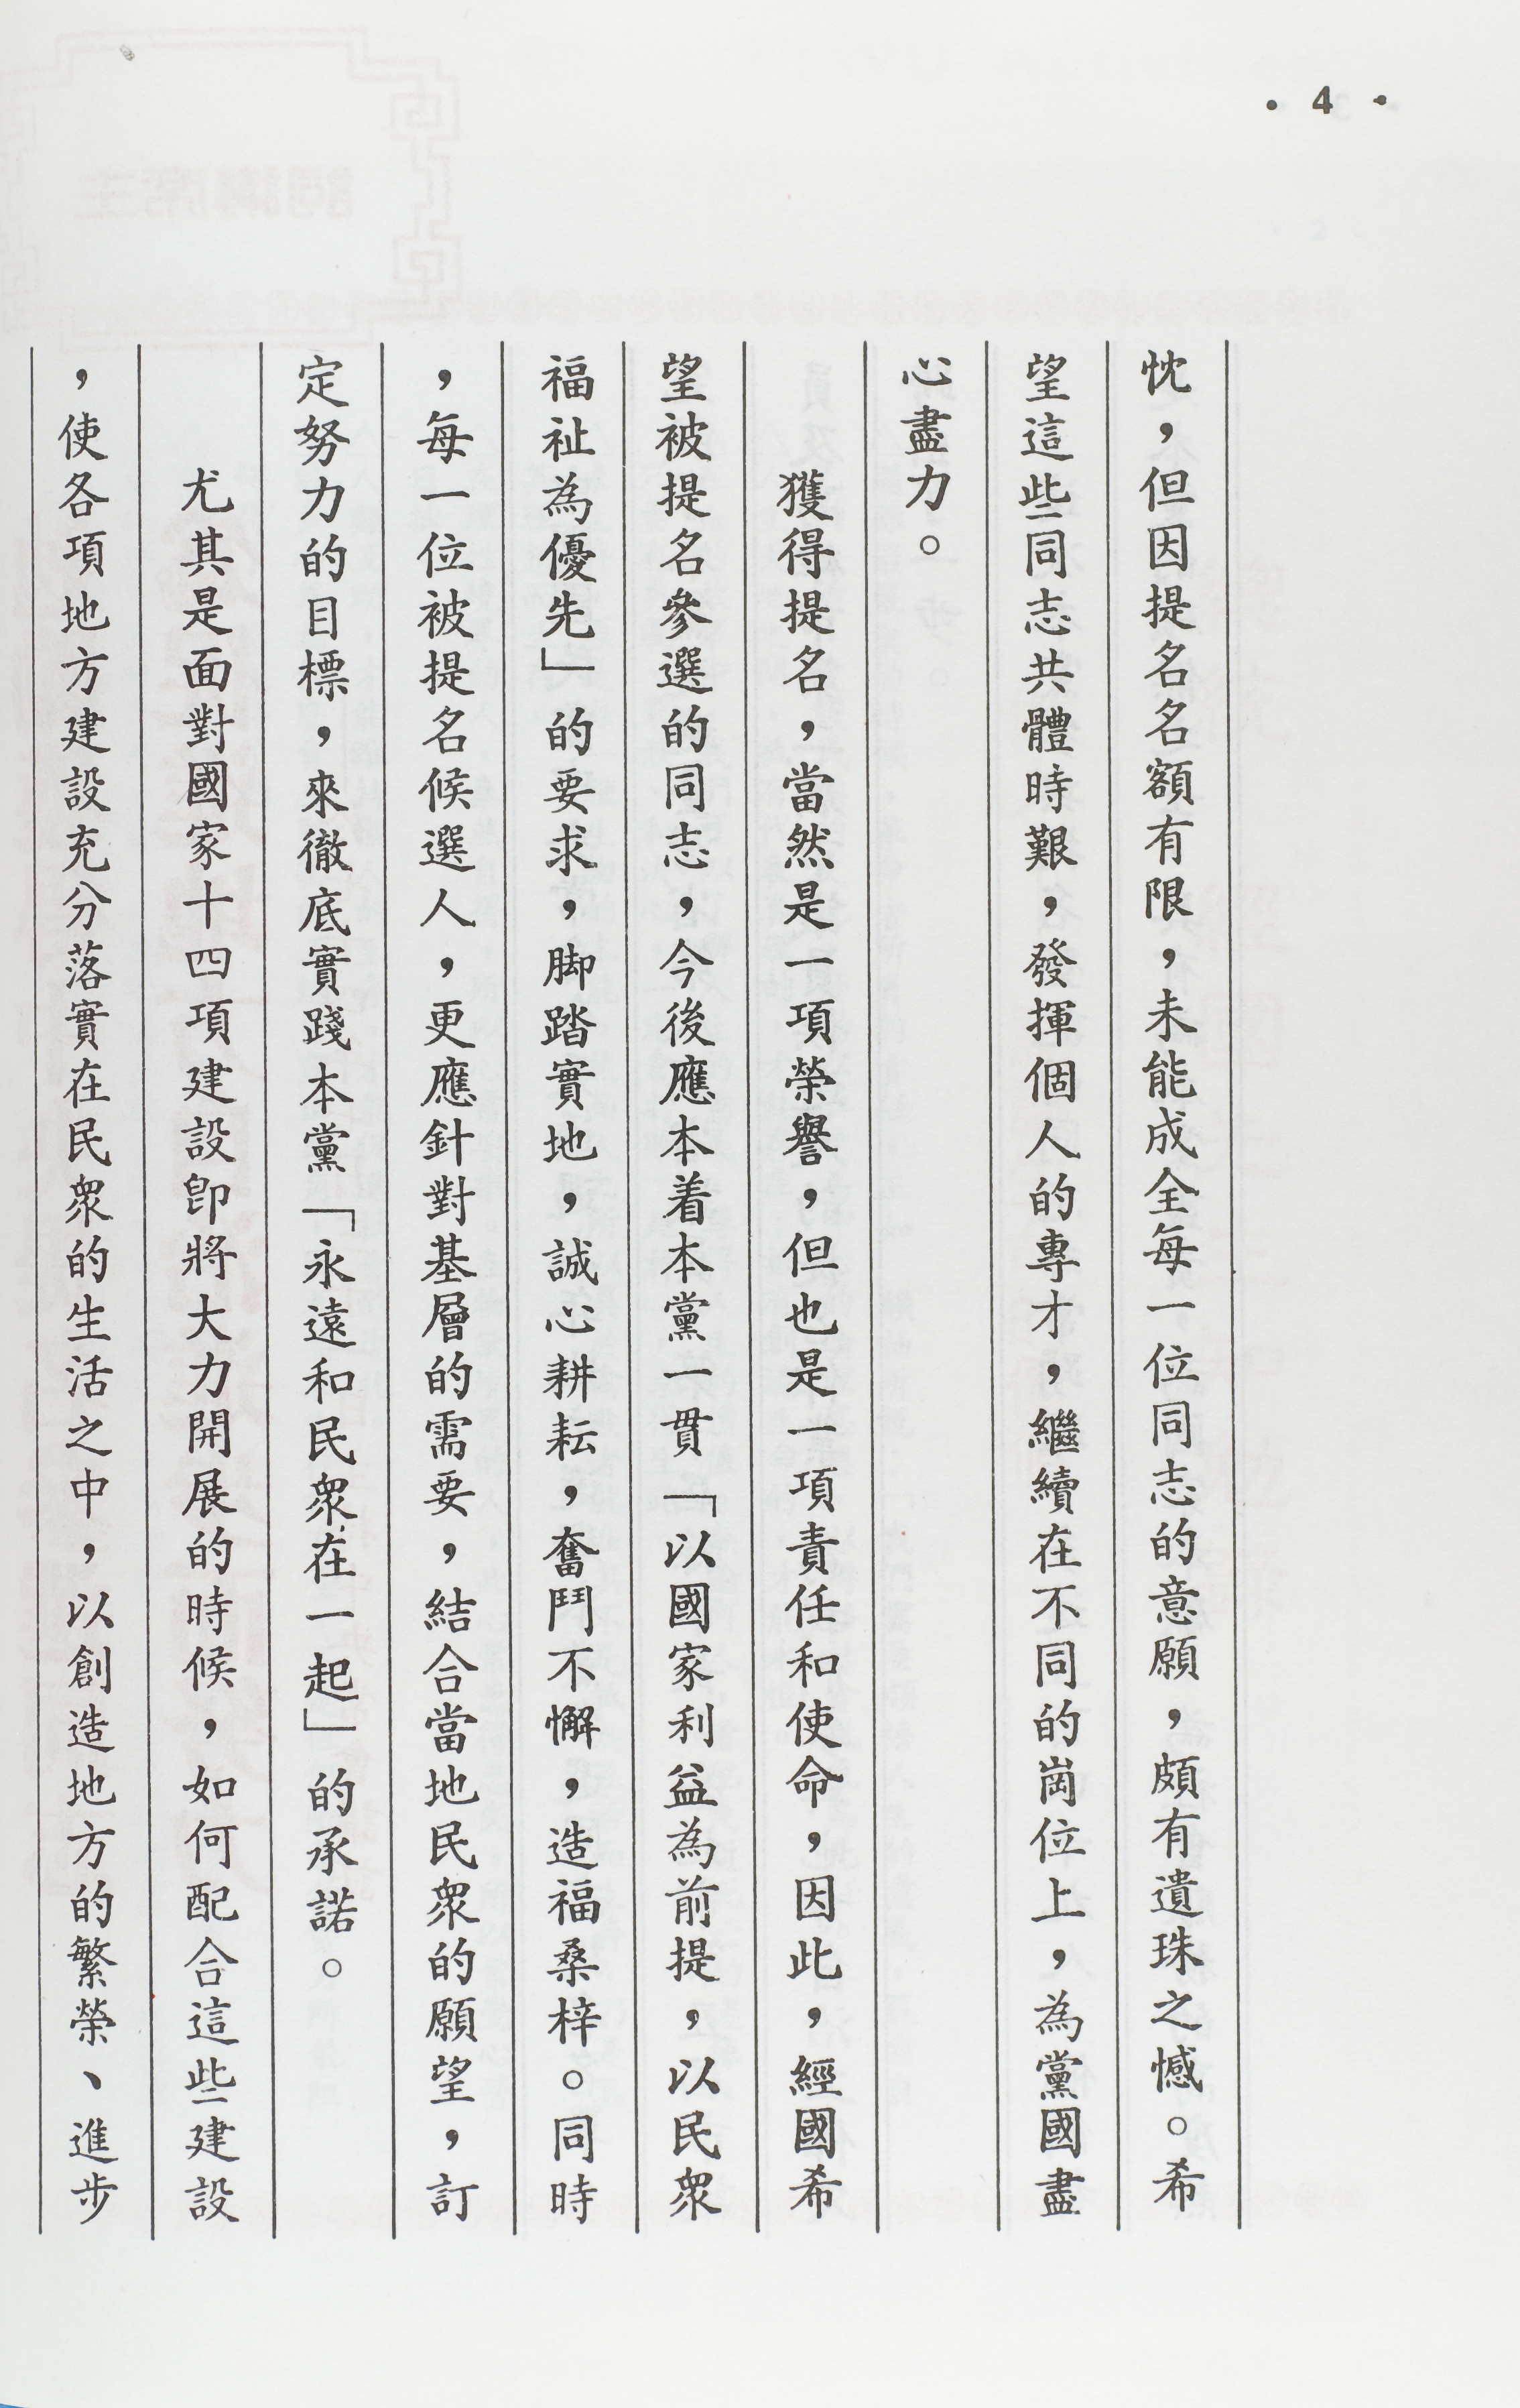 • 4 •
忱，但因提名名額有限，未能成全每一位同志的意願，頗有遺珠之憾。希
望這些同志共體時艱，發揮個人的專才，繼續在不同的崗位上，為黨國盡
心盡力。
獲得提名，當然是一項榮譽，但也是一項責任和使命，因此，經國希
望被提名參選的同志，今後應本着本黨一貫「以國家利益為前提，以民眾
福祉為優先」的要求，脚踏實地，誠心耕耘，奮鬥不懈，造福桑梓。同時
，每一位被提名候選人，更應針對基層的需要，結合當地民眾的願望，訂
定努力的目標，來徹底實踐本黨「永遠和民眾在一起」的承諾。
尤其是面對國家十四項建設即將大力開展的時候，如何配合這些建設
，使各項地方建設充分落實在民眾的生活之中，以創造地方的繁榮、進步